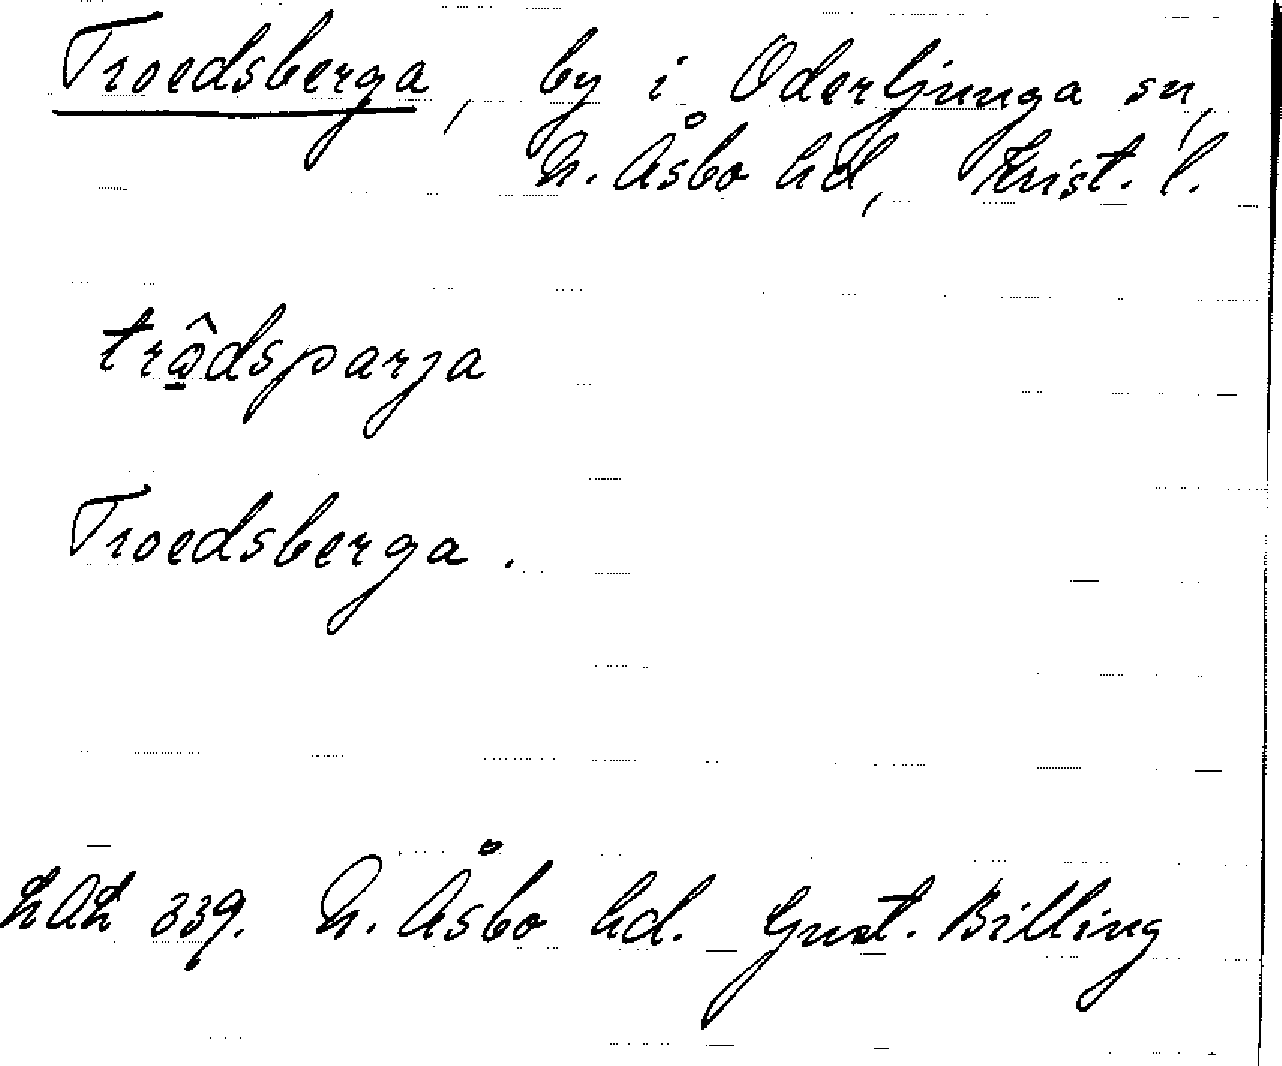 Troedsberga, by i Oderljunga sn,
N. Åsbo hd, Krist. l.
trô̱dsparja
Troedsberga.
LAL 339. N. Åsbo hd. Gust. Billing